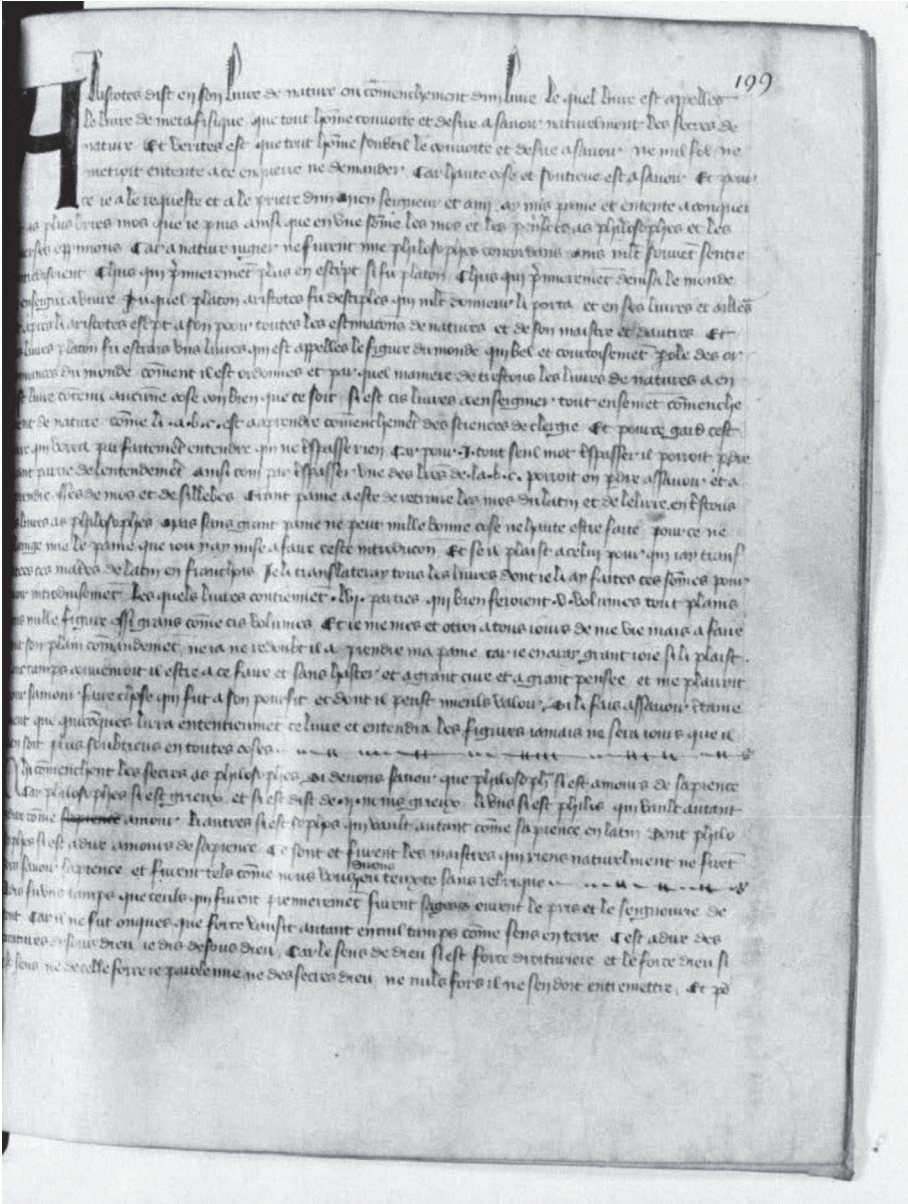 199
Aristotes dist en son livre de nature ou comenchement dun livre le quel livre est appelles
le livre de metafisique que tout home convoite et desire a savoir naturelment les secres de
nature Et verites est que tout home soubtil le convoite et desire a savoir ne nul fol ne
metroit entente a ce enquerre ne demander Car haute cose et soutieue est a savoir Et pour
ce ie a le requeste et a le priere dun mien seigneur et ami ay mis paine et entente a conquer
as plus briés mos que ie puis ainsi que en une some les mos et les pensees as philosophes et les
oppinions Car a nature iugier ne furent mie philosophes concordans mais mlt souvent sentre
Chius qui premierement plus en escript si fu platon Chius qui premierement devisa le monde
a vivre Du quel platon aristotes fu desciples qui mlt donneur li porta et en ses livres et ailleurs
apres li aristotes escript a son pooir toutes les estimacons de natures et de son maistre et dautres Et
livres platon fu estrais uns livres qui est appelles le figure du monde qui bel et courtoisement parole des or
du monde coment il est ordones et par quel maniere de trestous les livres de natures a en
livre contenu aucune cose con bien que ce soit Si est cis livres a enseigner tout ensement comenche
de nature come li .a.b.c. est a aprendre comenchement des sciences de clergie Et pour ce gard cest
qui vorra parfaitement entendre qui ne trespasse rien Car pour .i. tout seul mot trespasser il porroit perdre
partie de lentendement ainsi com par trespasser une des lettres de .la.b.c. porroit on perdre assavoir et a
asses de mos et de sillebes Grant paine a este de retraire les mos du latin et de leslire en trestous
livres as philosophes Mais sans grant paine ne peut nulle bonne cose ne haute estre faite pour ce ne
mie le paine que iou y ay mise a faire ceste introducon Et se il plaist a celui pour qui iay trans
ces materes de latin en franchois Je li translateray tous les livres dont ie li ay faites ces somes pour
Les quels livres contienent .lvi. parties qui bien feroient .v. volumes tout plains
nulle figure Assi grans come cis volumes Et ie me mes et otroi a tous iours de me vie mais a faire
son plain comandement ne ia ne redoubt il a prendre ma paine car ie en aray grant ioie si li plaist.
tamps convenroit il estre a ce faire et sans haster et a grant cure et a grant pensee et me plairoit
faire chose qui fut a son pourfit et dont il peust mieuls valoir Si li fais assavoir
que quiconques lira ententieument ce livre et entendra les figures iamais ne sera iours que il
soit plus soubtieus en toutes coses
Chi comenchent les secres as philosophes Si devons savoir que philosophes si est amours de sapience
Car philosophes si est grieux et si est dist de .ii. nons grieux li uns si est philis qui vault autant
come sapience amour li autres si est sophos qui vault autant come sapience en latin Dont philo
si est a dire amours de sapience Ce sont et furent les maistres qui riens naturelment ne firent
savoir sapience et furent tels come nous
dirons
ou texte sans rebrique
fu uns tamps que ceuls qui furent premierement furent sages eurent le pris et le seignourie de
Car il ne fut onques que force vausist autant en nul tamps come sens en terre Cest a dire des
desous dieu ie dis desous dieu Car le sens de dieu si est force droituriere et le force dieu si
sens ne de celle force ie parole mie ne des secres dieu ne nuls fors il ne sen doit entremettre. Et po